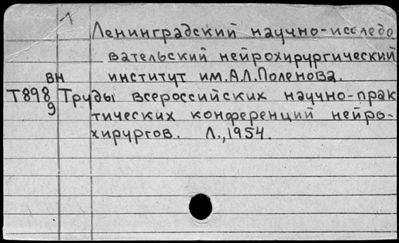 1
Ленинградский научно-исследо
вательский нейрохирургический
вн институт им.А.Л.Поленова.
Т898 Труды всероссийских научно-прак
9 тических конференций нейро-
хирургов. Л.,1954.